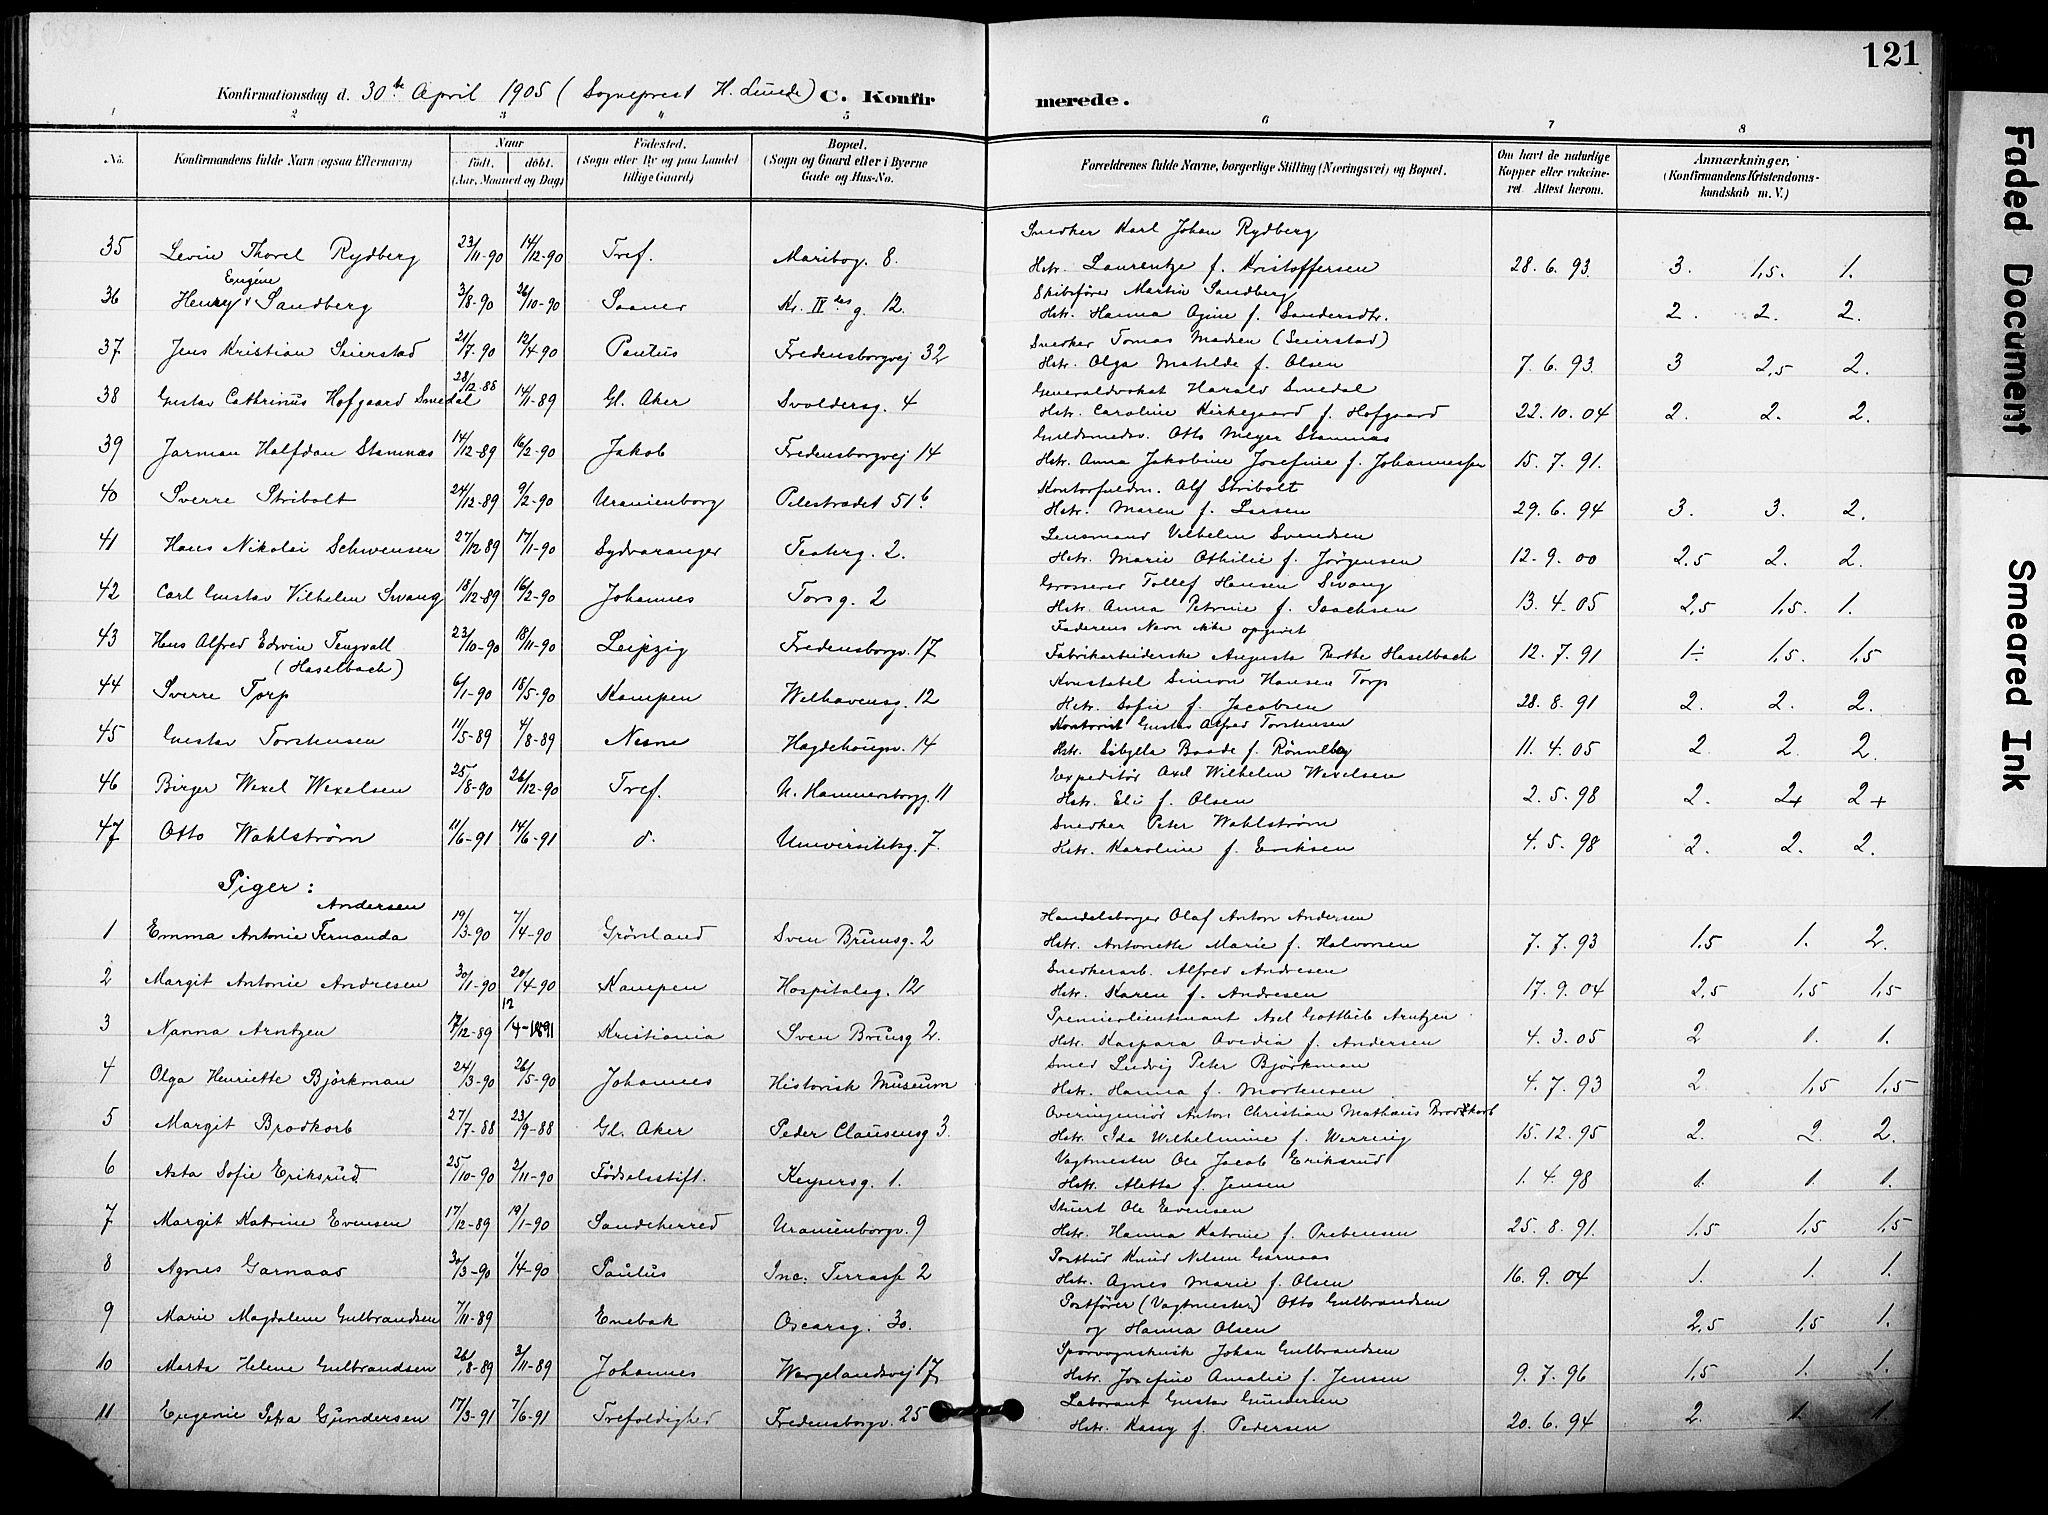 121
Konfirmationsdag d. 30te April 1905 (Sogneprest H. Lunde) C. Konfirmerede.
1 2 3 4 5 6 7 8
No. Konfirmandens fulde Navn (ogsaa Efternavn) Naar født. døbt. (Aar, Maaned og Dag) Fødested. (Sogn eller By og paa Landet tillige Gaard) Bopæl. (Sogn og Gaard eller i Byerne Gade og Hus-No. Forældrenes fulde Navne, borgerlige Stilling (Næringsvei) og Bopæl. Om havt de naturlige Kopper eller vakcineret. Attest herom. Anmærkninger. (Konfirmandens Kristendomskundskab m. V.)
Snedker Karl Johan Rydberg
35 Levin Thorel Rydberg 23/11-90 14/12-90 Tref. Maribog. 8. Hstr. Laurentze f. Kristoffersen 28.6.93. 3. 1,5. 1.
Eugéne Skibsfører Martin Sandberg
36 Henry v Sandberg 3/8-90 26/10-90 Saaner Kr. IV des g. 12. Hstr. Hanna Agine f. Sandersdtr. 2. 2. 2.
Snedker Tomas Madsen (Seierstad)
37 Jens Kristian Seierstad 21/7-90 12/4-90 Paulus Fredensborgvej 32 Hstr. Olga Matilde f. Olsen 7.6.93. 3 2,5 2.
28/12-88 Generaladvokat Harald Smedal
38 Gustav Cathrinus Hofgaard Smedal 14/11-89 Gl. Aker Svoldersg. 4 Hstr. Caroline Kirkegaard f. Hofgaard 22.10.04 2. 2. 2.
Guldsmedsv. Otto Meyer Stamnæs
39 Jarman Halfdan Stamnæs 14/12-89 16/2-90 Jakob Fredensborgvej 14 Hstr. Anna Jakobine Josefine f. Johannessen 15.7.91.
Kontorfuldm. Alf Stribolt
40 Sverre Stribolt 24/12-89 9/2-90 Uranienborg Pilestrædet 51 b Hstr. Maren f. Larsen 29.6.94 3. 3. 2.
Lensmand Vilhelm Svendsen
41 Hans Nikolai Schwensen 27/12 89 17/1-90 Sydvaranger Teaterg. 2. Hstr. Marie Othilie f. Jørgensen 12.9.00 2,5 2. 2.
Grosserer Tollef Hansen Svang
42 Carl Gustav Vilhelm Svang 18/12-89 16/2-90 Johannes Torsg. 2 Hstr. Anna Petrine f. Isachsen 13.4.05 2,5 1,5. 1.
Faderens Navn ikke opgivet
43 Hans Alfred Edvin Tengvall 23/10-90 18/11-90 Leipzig Fredensborgv. 17 Fabrikarbeiderske Augusta Berthe Haselbach 12.7.91 1÷ 1,5. 1,5
(Haselbach) Konstabel Simon Hansen Torp
44 Sverre Torp 6/1-90 18/5-90 Kampen Welhavensg. 12 Hstr. Sofie f. Jacobsen 28.8.91 2. 2. 2.
Kontorist Gustav Alfred Torstensen
45 Gustav Torstensen 11/5-89 4/8-89 Nesne Hægdehougv. 14 Hstr. Sibylla Baade f. Rønneberg 11.4.05 2. 2. 2
Expeditør Axel Wilhelm Wexelsen
46 Birger Wexel Wexelsen 25/8-90 26/12-90 Tref. N. Hammersborgg. 11 Hstr. Eli f. Olsen 2.5.98 2. 2+ 2+
Snedker Peter Wahlstrøm
47 Otto Wahlstrøm 11/6-91 14/6-91 d. Universitetsg. 7. Hstr. Karoline f. Eriksen 4.5.98 2. 2. 2.
Piger:
Andersen Handelsborger Olaf Anton Andersen
1 Emma Antonie Fernanda 19/3-90 7/4-90 Grønland Sven Brunsg. 2 Hstr. Antonette Marie f. Halvorsen 7.7.93 1,5 1. 2.
Snedkerarb. Alfred Andresen
2 Margit Antonie Andresen 30/1-90 20/4-90 Kampen Hospitalsg. 12 Hstr. Karen f. Andresen 17.9.04 2,5 1,5 1,5
12 Premierlieutenant Axel Gottlieb Arntzen
3 Nanna Arntzen 17/12-89 14-1891 Kristiania Sven Brunsg 2. Hstr. Kaspara Ovedia f. Andersen 4.3.05 2 1. 1.
Smed Ludvig Peter Björkman
4 Olga Henriette Björkman 24/3-90 26/5-90 Johannes Historisk Museum Hstr. Hanna f. Mortensen 4.7.93 2. 1,5 1,5
Overingeniør Anton Christian Mathæus Brodtkorb
5 Margit Brodkorb 27/7-88 23/9-88 Gl. Aker Peder Clausensg 3. Hstr. Ida Wilhelmine f. Werring 15.12.95 2. 2. 2.
Vagtmester Ole Jacob Eriksrud
6 Asta Sofie Eriksrud 25/10-90 2/11-90 Fødselsstift. Keysersg. 1. Hstr. Aletta f. Jensen 1.4.98 1. 1. 1.
Stuert Ole Evensen
7 Margit Katrine Evensen 17/12-89 19/1-90 Sandeherred Uranienborgv. 9 Hstr. Hanna Katrine f. Prebensen 25.8.91. 1,5 1,5 1,5
Postbud Knud Nilsen Garnaas
8 Agnes Garnaas 30/3-90 /4-90 Paulus Inc: Terrasse 2 Hstr. Agnes Marie f. Olsen 16.9.04 1. 1. 1.
Postfører (Vagtmester) Otto Gulbrandsen
9 Marie Magdalene Gulbrandsen 7/11-89 Enebak Oscarsg. 30. og Hanna Olsen 2,5 1,5 1.
Sporvognskusk Johan Gulbrandsen
10 Marta Helene Gulbrandsen 26/8-89 3/11-89 Johannes Wergelandsvej 17, Hstr. Josefine Amalie f. Jensen 9.7.96 1,5 1. 1.
Laborant Gustav Gundersen
11 Eugenie Petra Gundersen 17/3-91 7/6-91 Trefoldighed Fredensborgv. 25 Hstr. Kassy f. Pedersen 20.6.94 2. 1. 1.
Faded Document
Smeared Ink